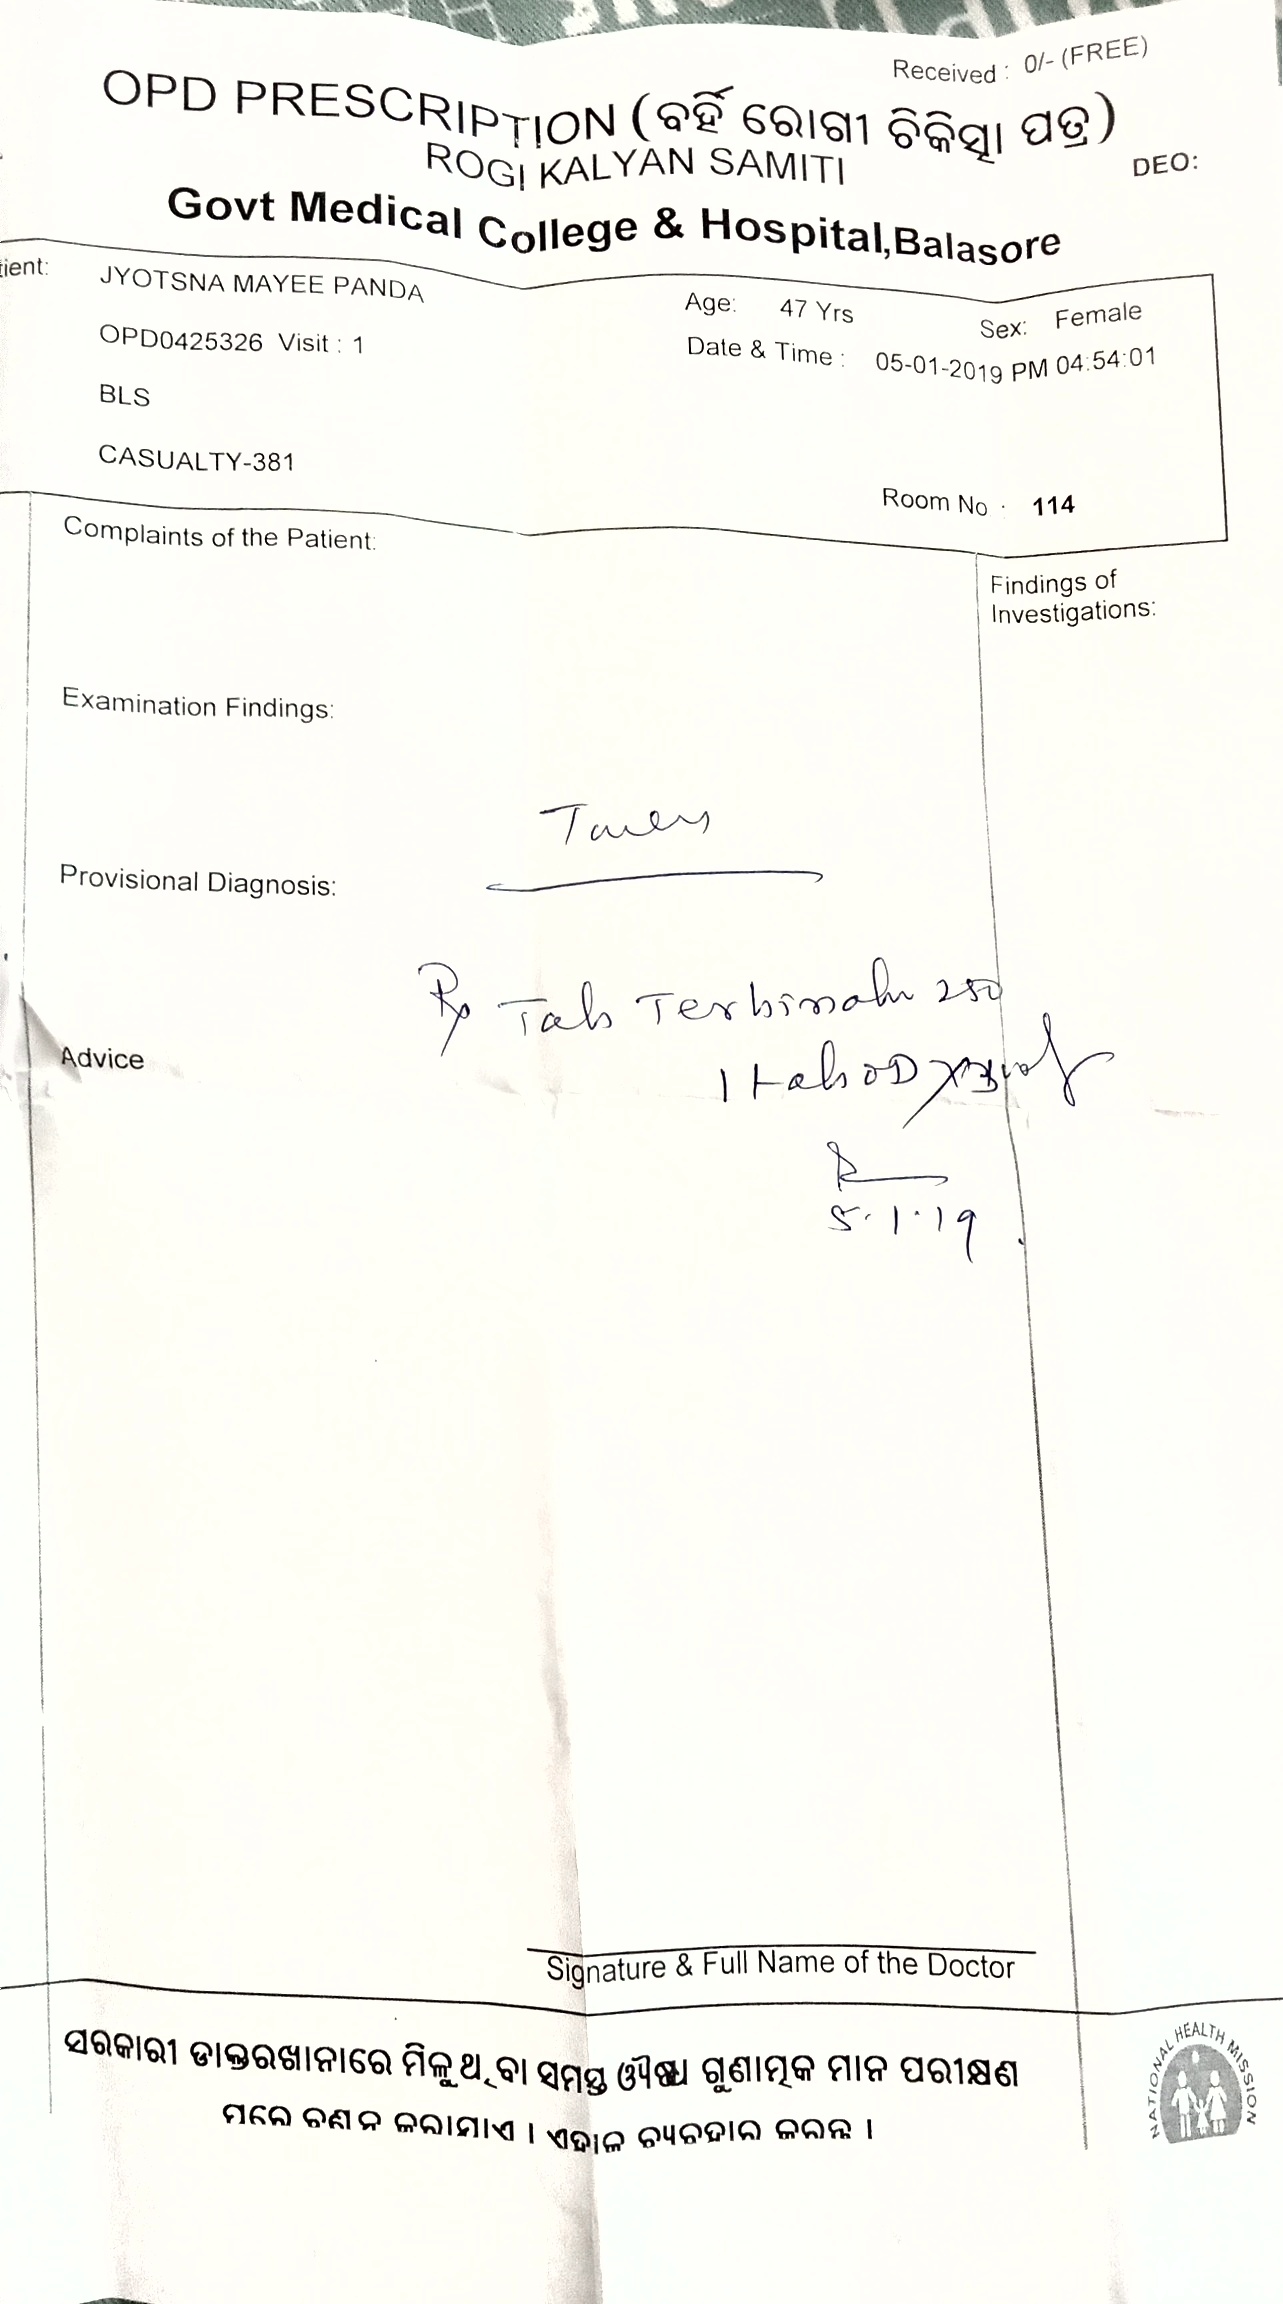 Received : 0/- (FREE)
OPD PRESCRIPTION (ବର୍ହି ରୋଗୀ ଚିକିତ୍ସା ପତ୍ର)
ROGI KALYAN SAMITI
DEO:
Govt Medical College & Hospital,Balasore
tient: JYOTSNA MAYEE PANDA Age: 47 Yrs Sex: Female
OPD0425326 Visit : 1 Date & Time : 05-01-2019 PM 04:54:01
BLS
CASUALTY-381
Room No : 114
Complaints of the Patient:
Findings of
Investigations:
Examination Findings:
Provisional Diagnosis:
Rp Tab Terbinafin 250
Advice
1 tab OD
5.1.19
Signature & Full Name of the Doctor
ସରକାରୀ ଡାକ୍ତରଖାନାରେ ମିଳୁଥିବା ସମସ୍ତ ଔଷଧ ଗୁଣାତ୍ମକ ମାନ ପରୀକ୍ଷଣ
NATIONAL HEALTH MISSION